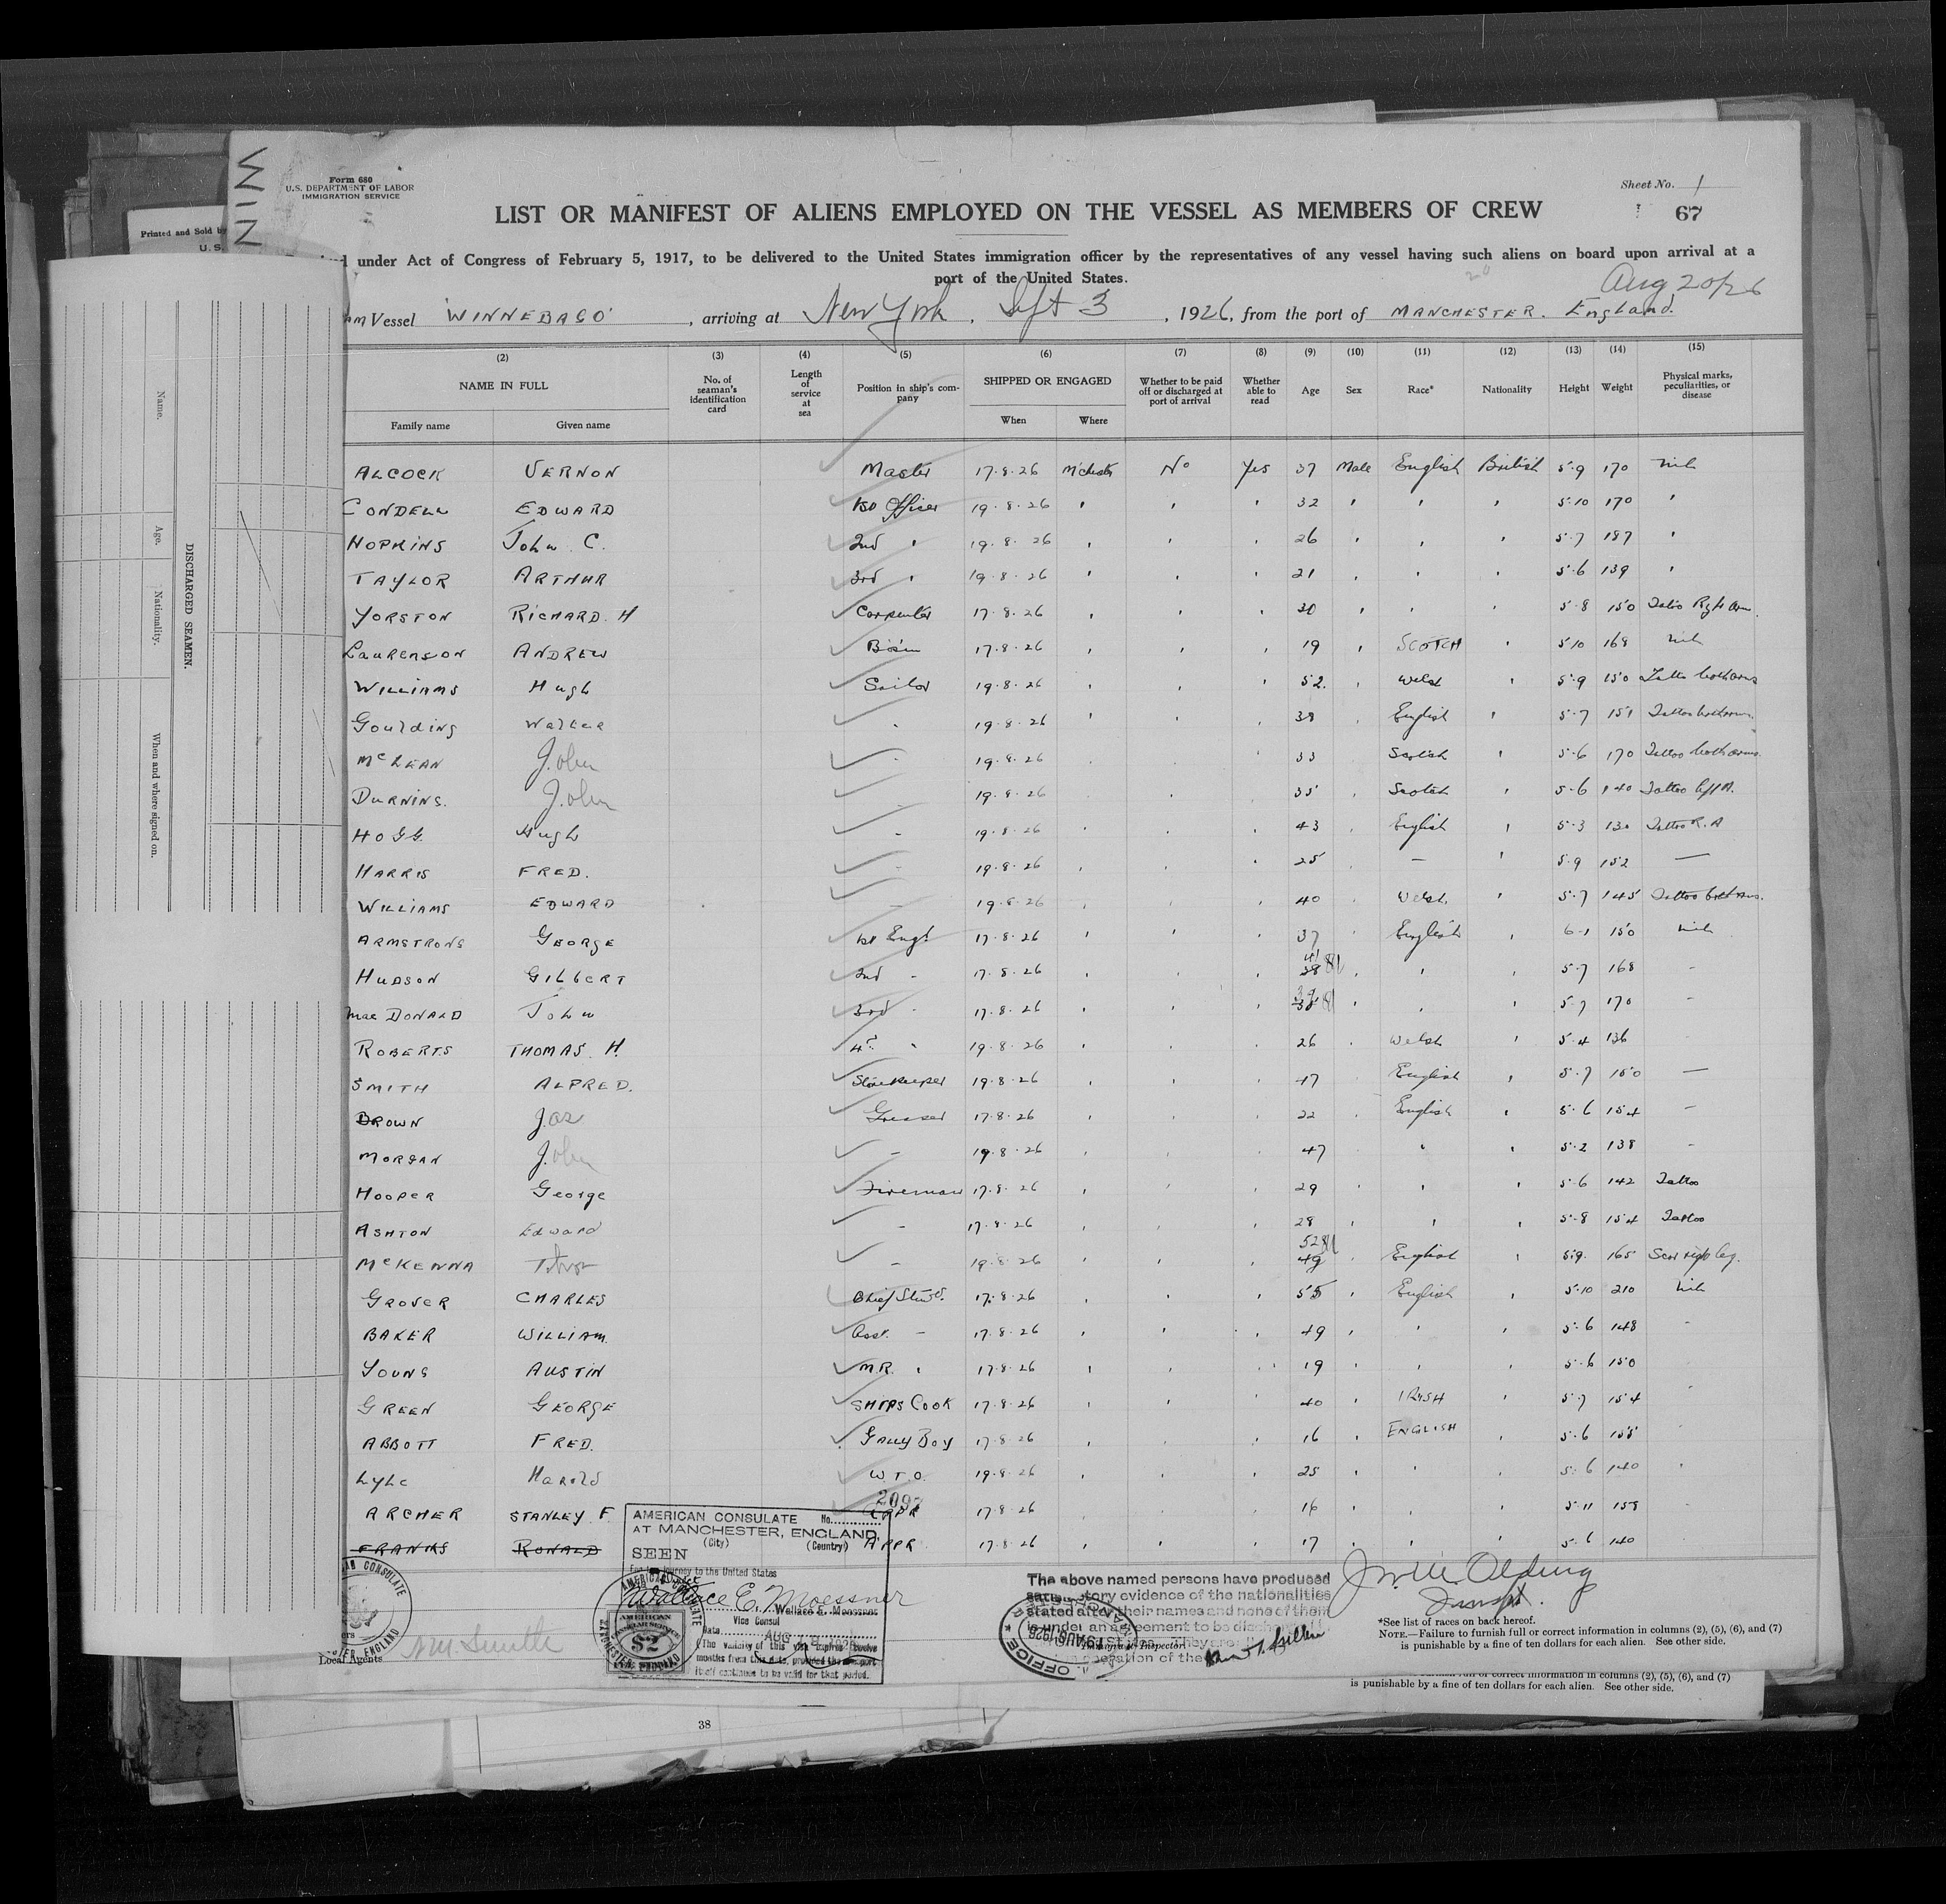 WIN
Form 680
U.S. DEPARTMENT OF LABOR
IMMIGRATION SERVICE
Sheet No. 1
67
Printed and Sold by
U. S.
LIST OR MANIFEST OF ALIENS EMPLOYED ON THE VESSEL AS MEMBERS OF CREW
under Act of Congress of February 5, 1917, to be delivered to the United States immigration officer by the representatives of any vessel having such aliens on board upon arrival at a
port of the United States.
Aug 20/26
Vessel "WINNEBAGO", arriving at New York, Sept 3, 1926, from the port of MANCHESTER. England.
(2) (3) (4) (5) (6) (7) (8) (9) (10) (11) (12) (13) (14) (15)
NAME IN FULL No. of seaman's identification card Length of service at sea Position in ship's company SHIPPED OR ENGAGED Whether to be paid off or discharged at port of arrival Whether able to read Age Sex Race* Nationality Height Weight Physical marks, peculiarities, or disease
Family name Given name When Where
ALCOCK VERNON Master 17.8.26 M'chester No Yes 37 Male English British 5.9 170 nil
CONDELL EDWARD 1st Officer 19.8.26 " " " 32 " " " 5.10 170 "
HOPKINS John C. 2nd " 19.8.26 " " " 26 " " " 5.7 187 "
TAYLOR ARTHUR 3rd " 19.8.26 " " " 21 " " " 5.6 139 "
YORSTON RICHARD. H Carpenter 17.8.26 " " " 30 " " " 5.8 150 Tatto Right arm.
LAURENSON ANDREW Bosun 17.8.26 " " " 19 " SCOTCH " 5.10 168 nil
WILLIAMS Hugh Sailor 19.8.26 " " " 52. " Welsh " 5.9 150 Tatto both arms
Goulding Walter " 19.8.26 " " " 38 " English " 5.7 151 Tattoo both arms.
McLEAN John " 19.8.26 33 Scotch " 5.6 170 Tattoo both arms.
DURNING. John " 19.8.26 35 " Scotch " 5.6 140 Tattoo left A.
HOGG. Hugh " 19.8.26 " " " 43 " English " 5.3 130 Tattoo R. A
HARRIS FRED. " 19.8.26 " " " 25 — " 5.9 152 —
WILLIAMS EDWARD " 19.8.26 " " " 40 " Welsh. " 5.7 145 Tattoo both arms.
ARMSTRONG GEORGE 1st Engr. 17.8.26 " " " 37 English " 6.1 150 nil
HUDSON GILBERT 2nd " 17.8.26 " " " 38 41 " " " 5.7 168 -
Mac DONALD John 3rd " 17.8.26 " " " " " " 5.7 170 -
ROBERTS THOMAS. H. 4th " 19.8.26 " " " 26 " Welsh " 5.4 136
SMITH ALFRED. Storekeeper 19.8.26 " " " 47 English " 5.7 150 —
BROWN Jas Greaser 17.8.26 " " " 22 English " 5.6 154 -
MORGAN John " 19.8.26 " " " 47 " " 5.2 138 -
HOOPER George Fireman 17.8.26 " " " 29 " " " 5.6 142 Tattoo
ASHTON Edward " 17.8.26 " " " 28 " " " 5.8 154 Tattoo
McKENNA " 19.8.26 " " " 49 52 " English " 5.9. 165 Scar right leg.
GROVER CHARLES Chief Stwd. 17.8.26 " " " 55 " English " 5.10 210 nil
BAKER WILLIAM Asst. - 17.8.26 " " " 49 " " " 5.6 148 -
YOUNG AUSTIN M.R. " 17.8.26 " " " 19 " " " 5.6 150
GREEN GEORGE SHIPS COOK 17.8.26 " " " 40 " IRISH " 5.7 154
ABBOTT FRED. GALLY BOY 17.8.26 " " " 16 " ENGLISH " 5.6
LYLE Harold W.T.O. 19.8.26 " " " 25 " " " 5.6 140
ARCHER STANLEY F. APPR 17.8.26 " " " 16 " " " 5.11 158
FRANKS RONALD APPR 17.8.26 " " " 17 " " " 5.6 140
Name.
Age.
Nationality.
When and where signed on.
DISCHARGED SEAMEN.
AMERICAN CONSULATE No. 2097
AT MANCHESTER, ENGLAND
(City) (Country)
SEEN
For the journey to the United States
Wallace E. Moessner
Wallace E. Moessner
Vice Consul
Date AUG 19 1926
(The validity of this visa expires twelve
months from this date, provided the passport
itself continues to be valid for that period.
AMERICAN CONSULAR SERVICE
$2
The above named persons have produced
satisfactory evidence of the nationalities
stated after their names and none of them
under an agreement to be discharged
operation of the
Immigration Inspector
19 AUG 1926
OFFICE
*See list of races on back hereof.
NOTE.—Failure to furnish full or correct information in columns (2), (5), (6), and (7)
is punishable by a fine of ten dollars for each alien. See other side.
Local Agents
correct information in columns (2), (5), (6), and (7)
is punishable by a fine of ten dollars for each alien. See other side.
38